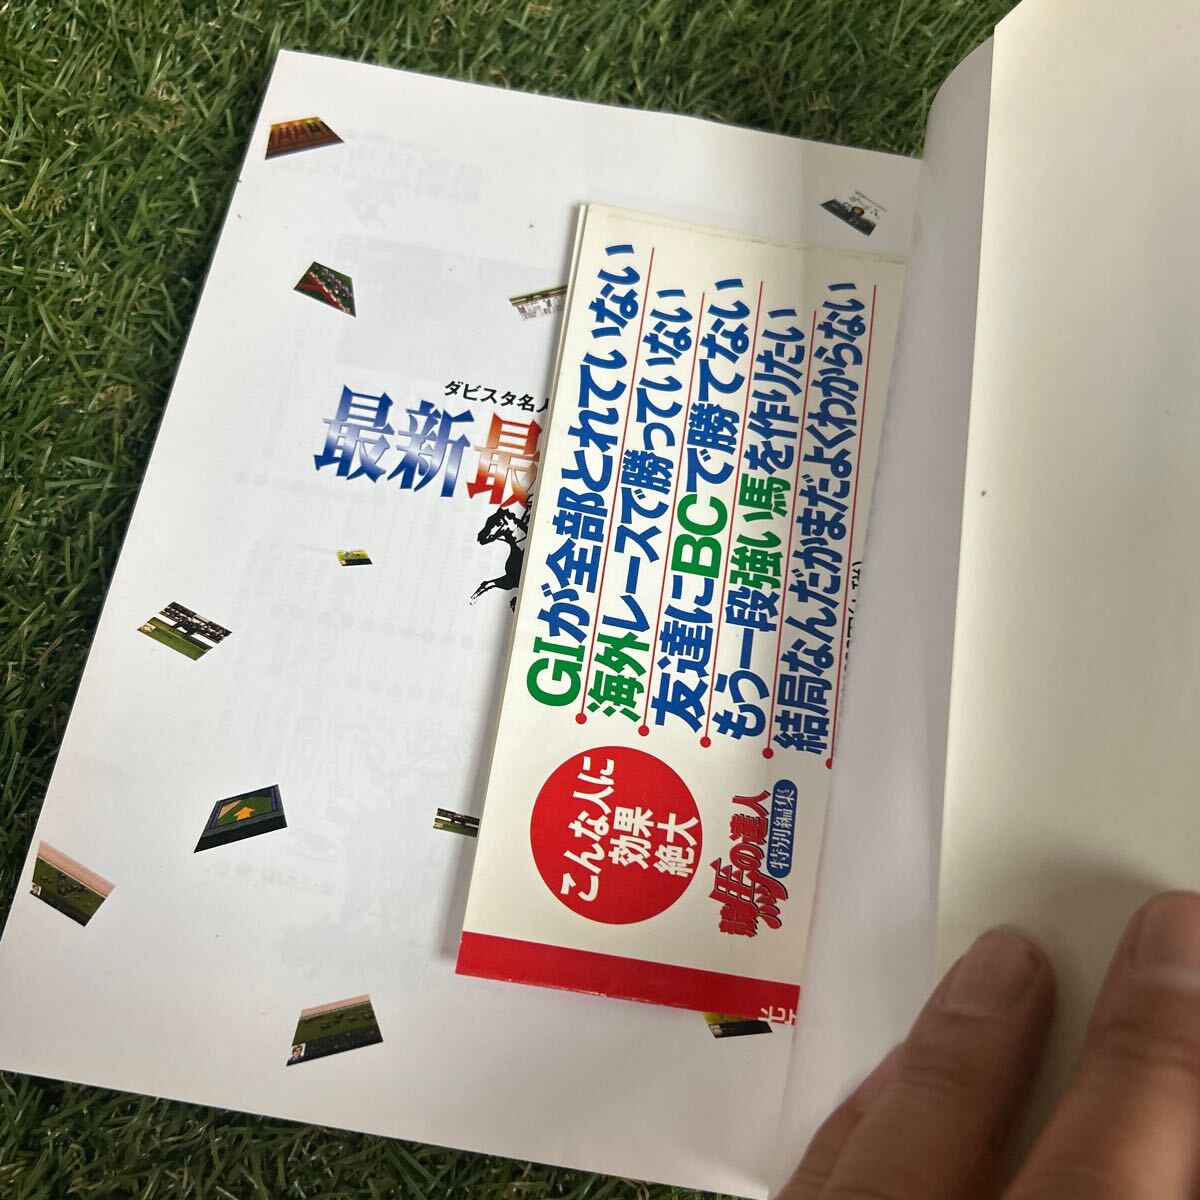 ダビスタ名人
最新最
GIが全部とれていない
海外レースで勝っていない
友達にBCで勝てない
もう一段強い馬を作りたい
結局なんだかまだよくわからない
こんな人に
効果
絶大
競馬の達人
特別編集